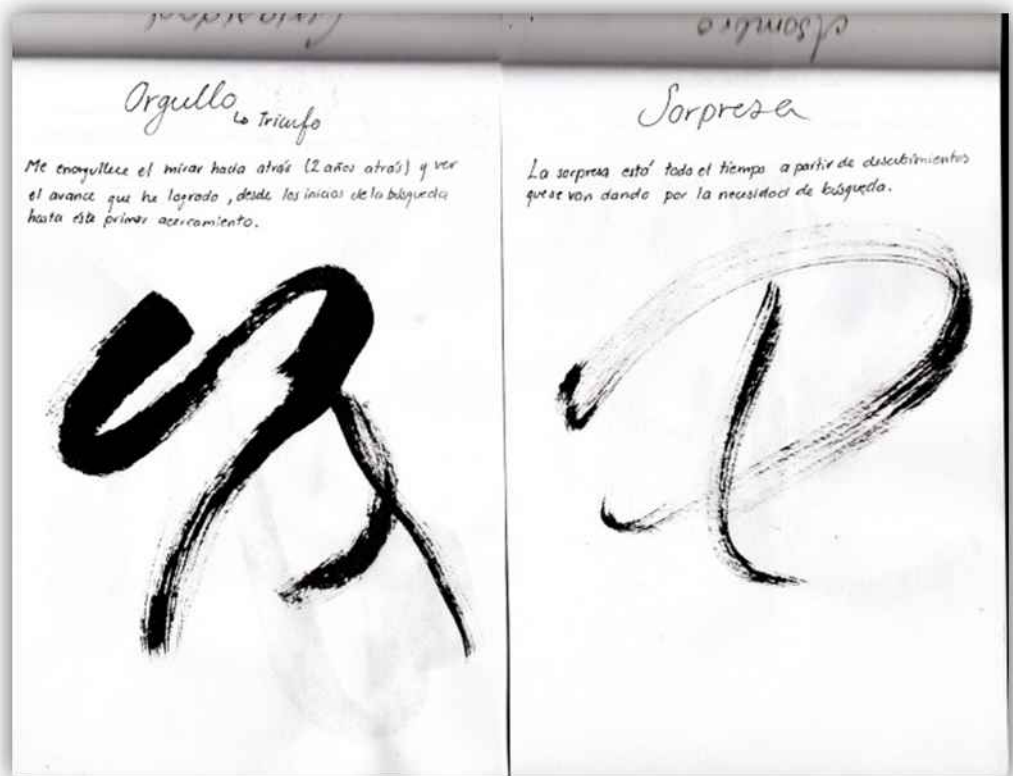 Curiosidad
Asombro
Orgullo
↳ Triunfo
Me enorgullece el mirar hacia atrás (2 años atrás) y ver
el avance que he logrado, desde los inicios de la búsqueda
hasta este primer acercamiento.
Sorpresa
La sorpresa está todo el tiempo a partir de descubrimientos
que se van dando por la necesidad de búsqueda.